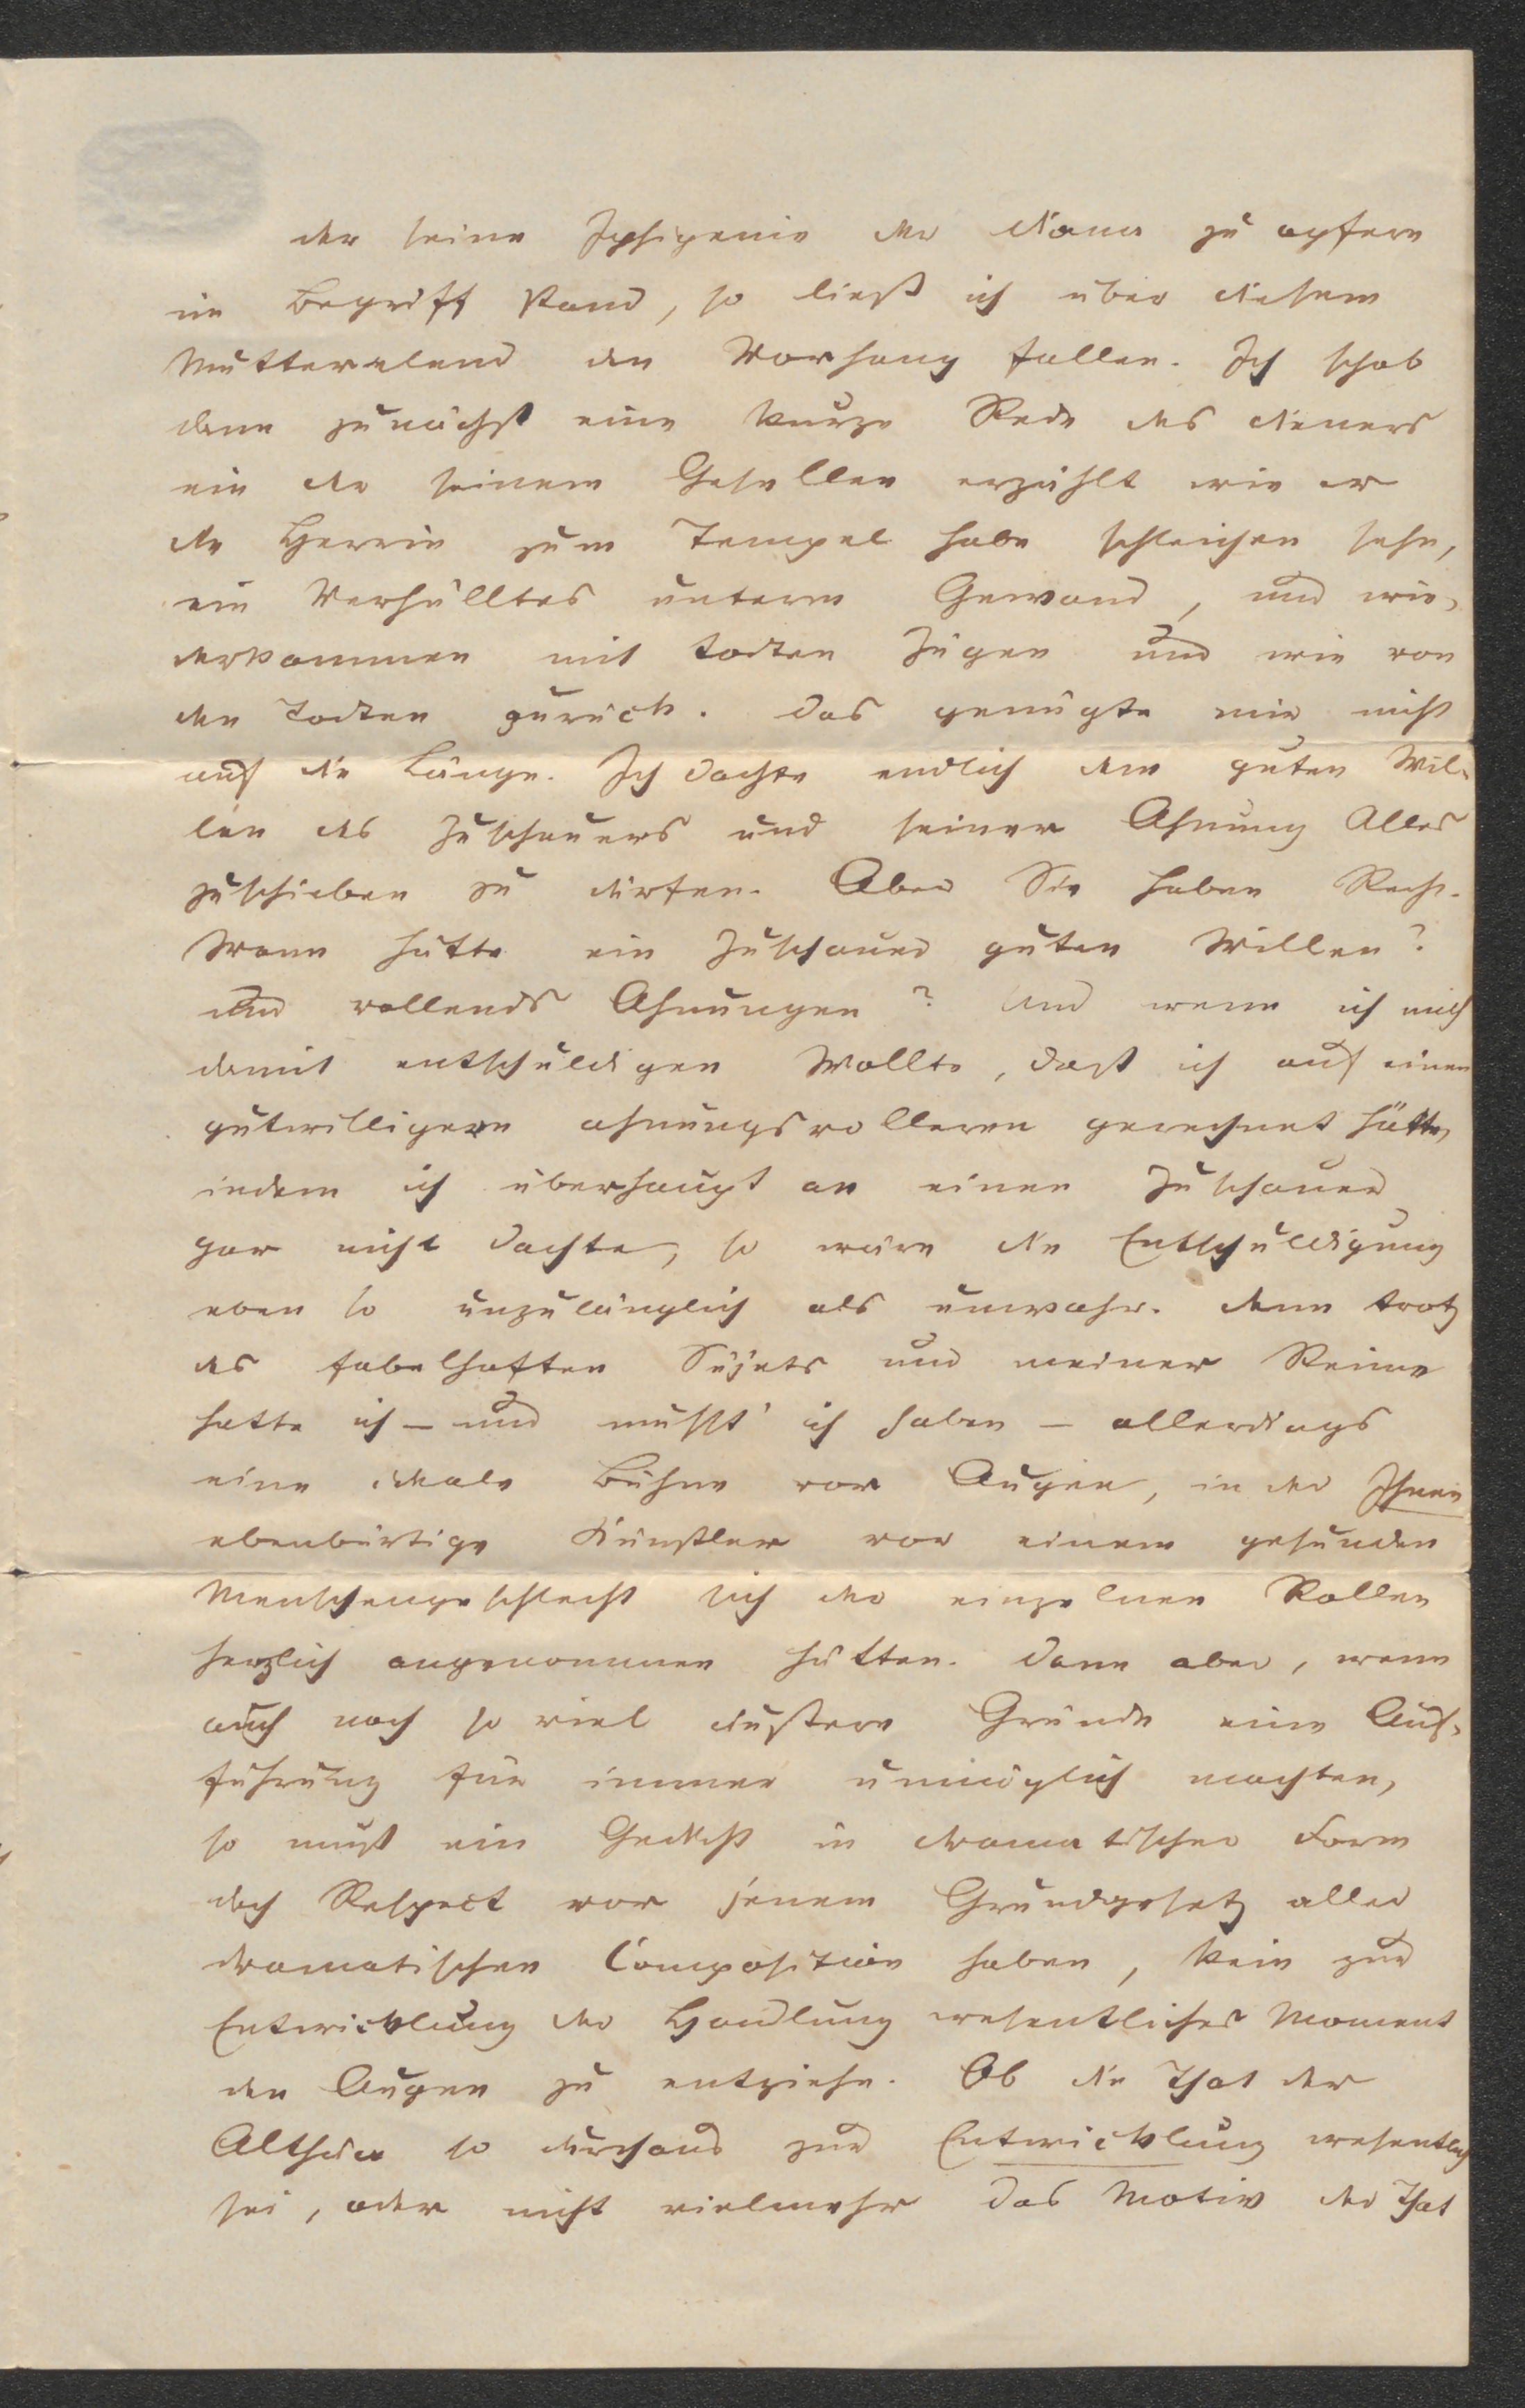 der seine Iphigenie der Diana zu opfern
im Begriff stand, so ließ ich über diesem
Mutterelend den Vorhang fallen. Ich schob
dann zunächst eine kurze Rede des Dieners
ein der seinem Gesellen erzählt wie er
die Herrin zum Tempel habe schleichen sehn,
ein Verhülltes unterm Gewand, und wie-
derkommen mit todten Zügen und wie von
den Todten zurück. Das genügte mir nicht
auf die Länge. Ich dachte endlich dem guten Wil-
len des Zuschauers und seiner Ahnung Alles
zuschieben zu dürfen. Aber Sie haben Recht.
Wann hätte ein Zuschauer guten Willen?
Und vollends Ahnungen? Und wenn ich mich
damit entschuldigen wollte, daß ich auf einen
gutwilligern ahnungsvolleren gerechnet hätte,
indem ich überhaupt an einen Zuschauer
gar nicht dachte, so wäre die Entschuldigung
eben so unzulänglich als unwahr. Denn trotz
des fabelhaften Süjets und meiner Reime
hatte ich – und mußt' ich haben – allerdings
eine ideale Bühne vor Augen, in der Ihnen
ebenbürtige Künstler vor einem gesunden
Menschengeschlecht sich der einzelnen Rollen
herzlich angenommen hätten. Dann aber, wenn
auch noch so viel äußere Gründe eine Auf-
führung für immer unmöglich machten,
so muß ein Gedicht in dramatischer Form
doch Respect vor jenem Grundgesetz aller
dramatischen Composition haben, kein zur
Entwicklung der Handlung wesentliches Moment
den Augen zu entziehn. Ob die That der
Althäa so durchaus zur Entwicklung wesentlich
sei, oder nicht vielmehr das Motiv der That